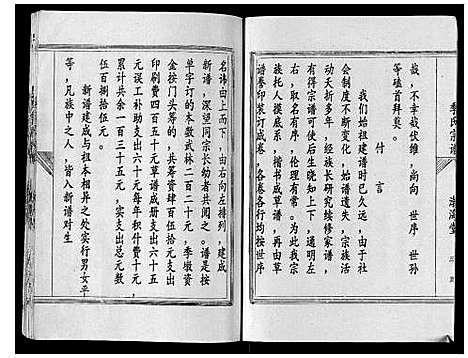 李氏宗谱
渤海堂
哉，不幸哉伏维，尚向 世序 世孙
等磕首拜奠。
付言
我们始祖建谱时已久远，由于
社会制度不断变化，始谱遗失，宗族活
动天折多年，族长研究续修家谱，
有得宗谱可使后生晓知上下，通明左
右，取名有序，伦理有常。为此我宗
族托人撰就，自愿筹资，草创成册，
谱卷印装打成卷，各卷各行均按世序
名讳由上而下，由右向左排列，建成
新谱，深望同宗长幼者共阅之。谱是按
单字订的本数武林二百二十元，季墩资
金按门头筹的，共筹资肆百伍拾元支出
印刷费四百五十元草谱成册支出六十五
元误工补助支出六十元每年积件费十元，
累计共余一百三十五元，实支出总元数
伍百捌拾伍元。
新谱建成与祖本相异之处实行男女平
等，凡族中之人，皆入新谱对生